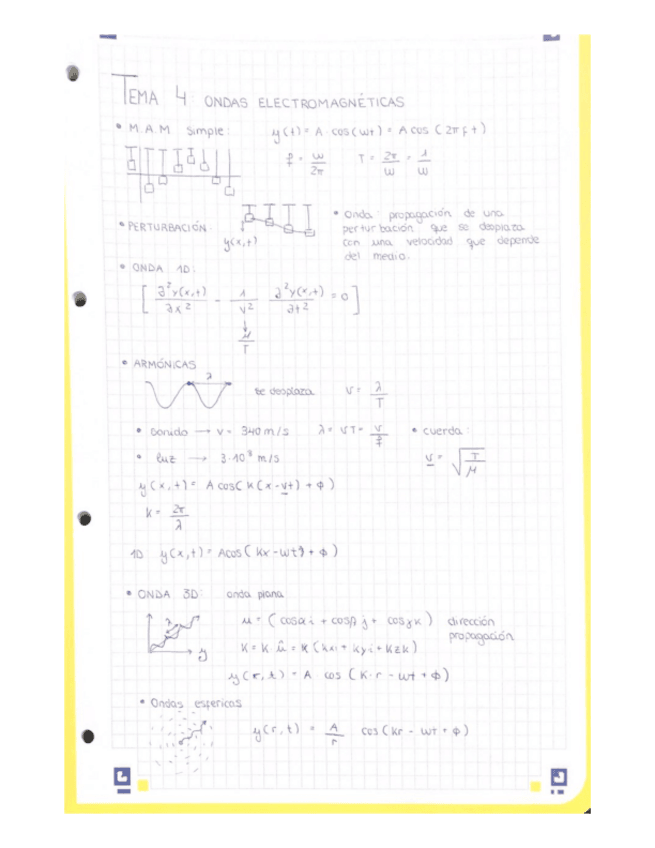 TEMA 4: ONDAS ELECTROMAGNÉTICAS
• M.A.M simple: y(t) = A · cos(wt) = A cos (2π f t)
f = w/2π T = 2π/w = 1/w
• PERTURBACIÓN: y(x,t)
• Onda: propagación de una
perturbación que se desplaza
con una velocidad que depende
del medio.
• ONDA 1D:
[ ∂²y(x,t)/∂x² - 1/v² ∂²y(x,t)/∂t² = 0 ]
↓
μ/T
• ARMÓNICAS
λ
se desplaza v = λ/T
• sonido → v = 340 m/s λ = vT = v/f • cuerda:
• luz → 3·10⁸ m/s v = √(T/μ)
y(x,t) = A cos( K(x - vt) + ϕ)
K = 2π/λ
1D y(x,t) = Acos( kx - wt) + ϕ)
• ONDA 3D: onda plana
λ y
u = ( cosα i + cosβ j + cosγ k ) dirección
propagación
K = K · û = K (kxi + kyi + kzk)
y(r,t) = A · cos (K·r - wt + ϕ)
• Ondas esfericas
y(r,t) = A/r cos (kr - wt + ϕ)